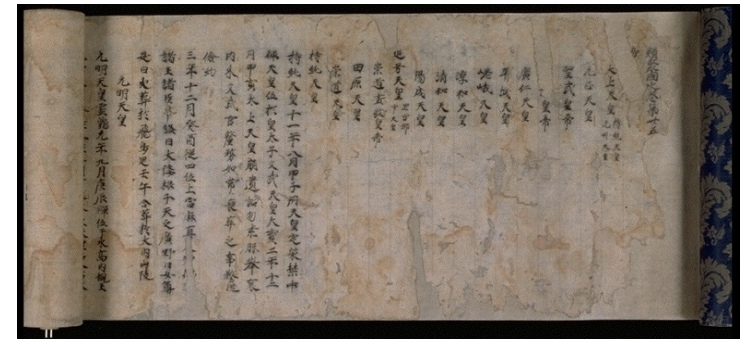 類聚國史卷第廿五
太上天皇 持統天皇 元明天皇
元正天皇
聖武皇帝
皇帝
仁天皇
平城天皇
嵯峨天皇
淳和天皇
清和天皇
陽成天皇
追号天皇
崇道盡敬皇帝
田原天皇
崇道天皇
持統天皇
持統天皇十一年八月甲子朔天皇定策禁中
禪天皇位於皇太子文武天皇大寶二年十二
月甲寅太上天皇崩遺詔勿素服擧哀
内外文武官釐務如常喪葬之事務從
儉約
三年十二月癸酉從四位上當麻真人
諸王諸臣奉誄謚曰大倭根子天之廣野日女尊
是日火葬於飛鳥岡壬午合葬於大内山陵
元明天皇
元明天皇靈龜元年九月庚辰禪位于氷高内親王